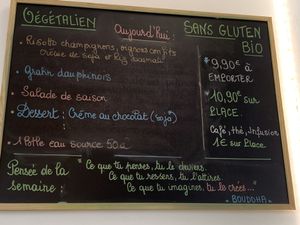 VÉGÉTALIEN
Aujourd'hui :
SANS GLUTEN
BiO
- Risotto champignons, oignons confits
Crème de soja et Riz basmati
- Gratin dauphinois
- Salade de saison
- Dessert : Crème au chocolat (soja)
- 1 Ptite eau source 50 cl
* 9,90€ à
EMPORTER
* 10,90€ sur
PLACE.
Café, thé, Infusion
1€ sur Place
Pensée de la
semaine :
" Ce que tu penses, tu le deviens.
Ce que tu ressens, tu l'attires.
Ce que tu imagines, tu le crées... "
BOUDDHA